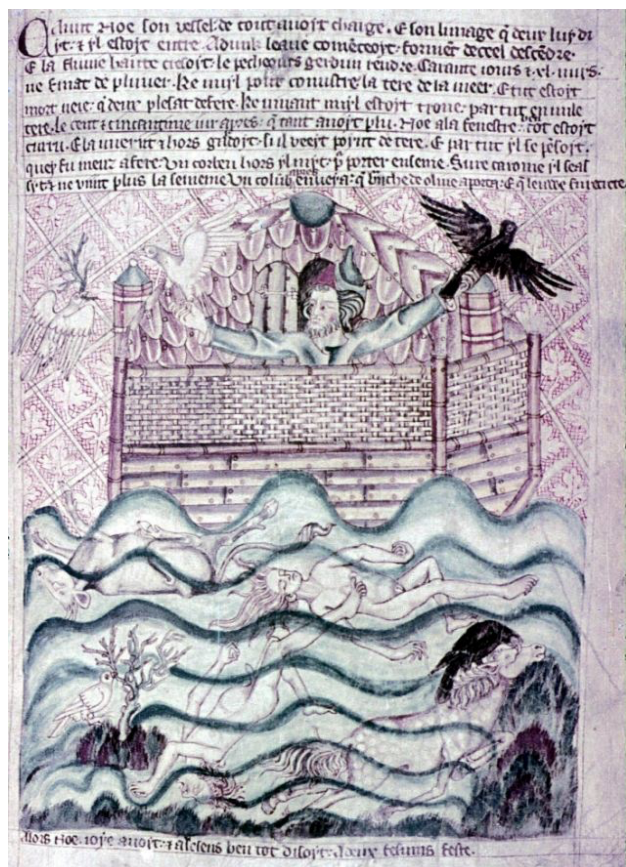 Quant Noe son vessel de tout avoit charge. E son linage q deux luy di
it. & yl estoit entre. Adunk leave comēceoit. forment decel descēdre.
E la fluvie hautte cresoit. le pecheours gerdun rendre. Caraute iours & el nuis.
ne finat de pluver. Ke nuyl potte conustre la tere de la meer. E tut estoit
mort veie. q deux plesat defere. Ke vivaut nuyl estoit trove. par tut en nule
tere. le cent & cincantime iur apres. q taut avoit plu. Noe ala fenestre. tot estoit
E la uverit & hors si il veeit point de tere. E par tut yl se pesoit.
quey fu meux a fere. Un corben hors il myt. p porter enseine. Sure caroine yl seas
syt & ne vint plus la semeine. Un colub apres enveia. q bnche de olive aporta. E q leauve fu retrete
Alors Noe ioye avoit. & a lesens ben tot disoit. A deux fesums feste.